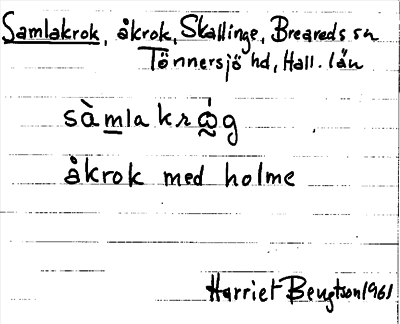 Samlakrok, åkrok, Skallinge, Breareds sn
Tönnersjö hd, Hall. län
sàmlakrå̀g
åkrok med holme
Harriet Bengtson 1961